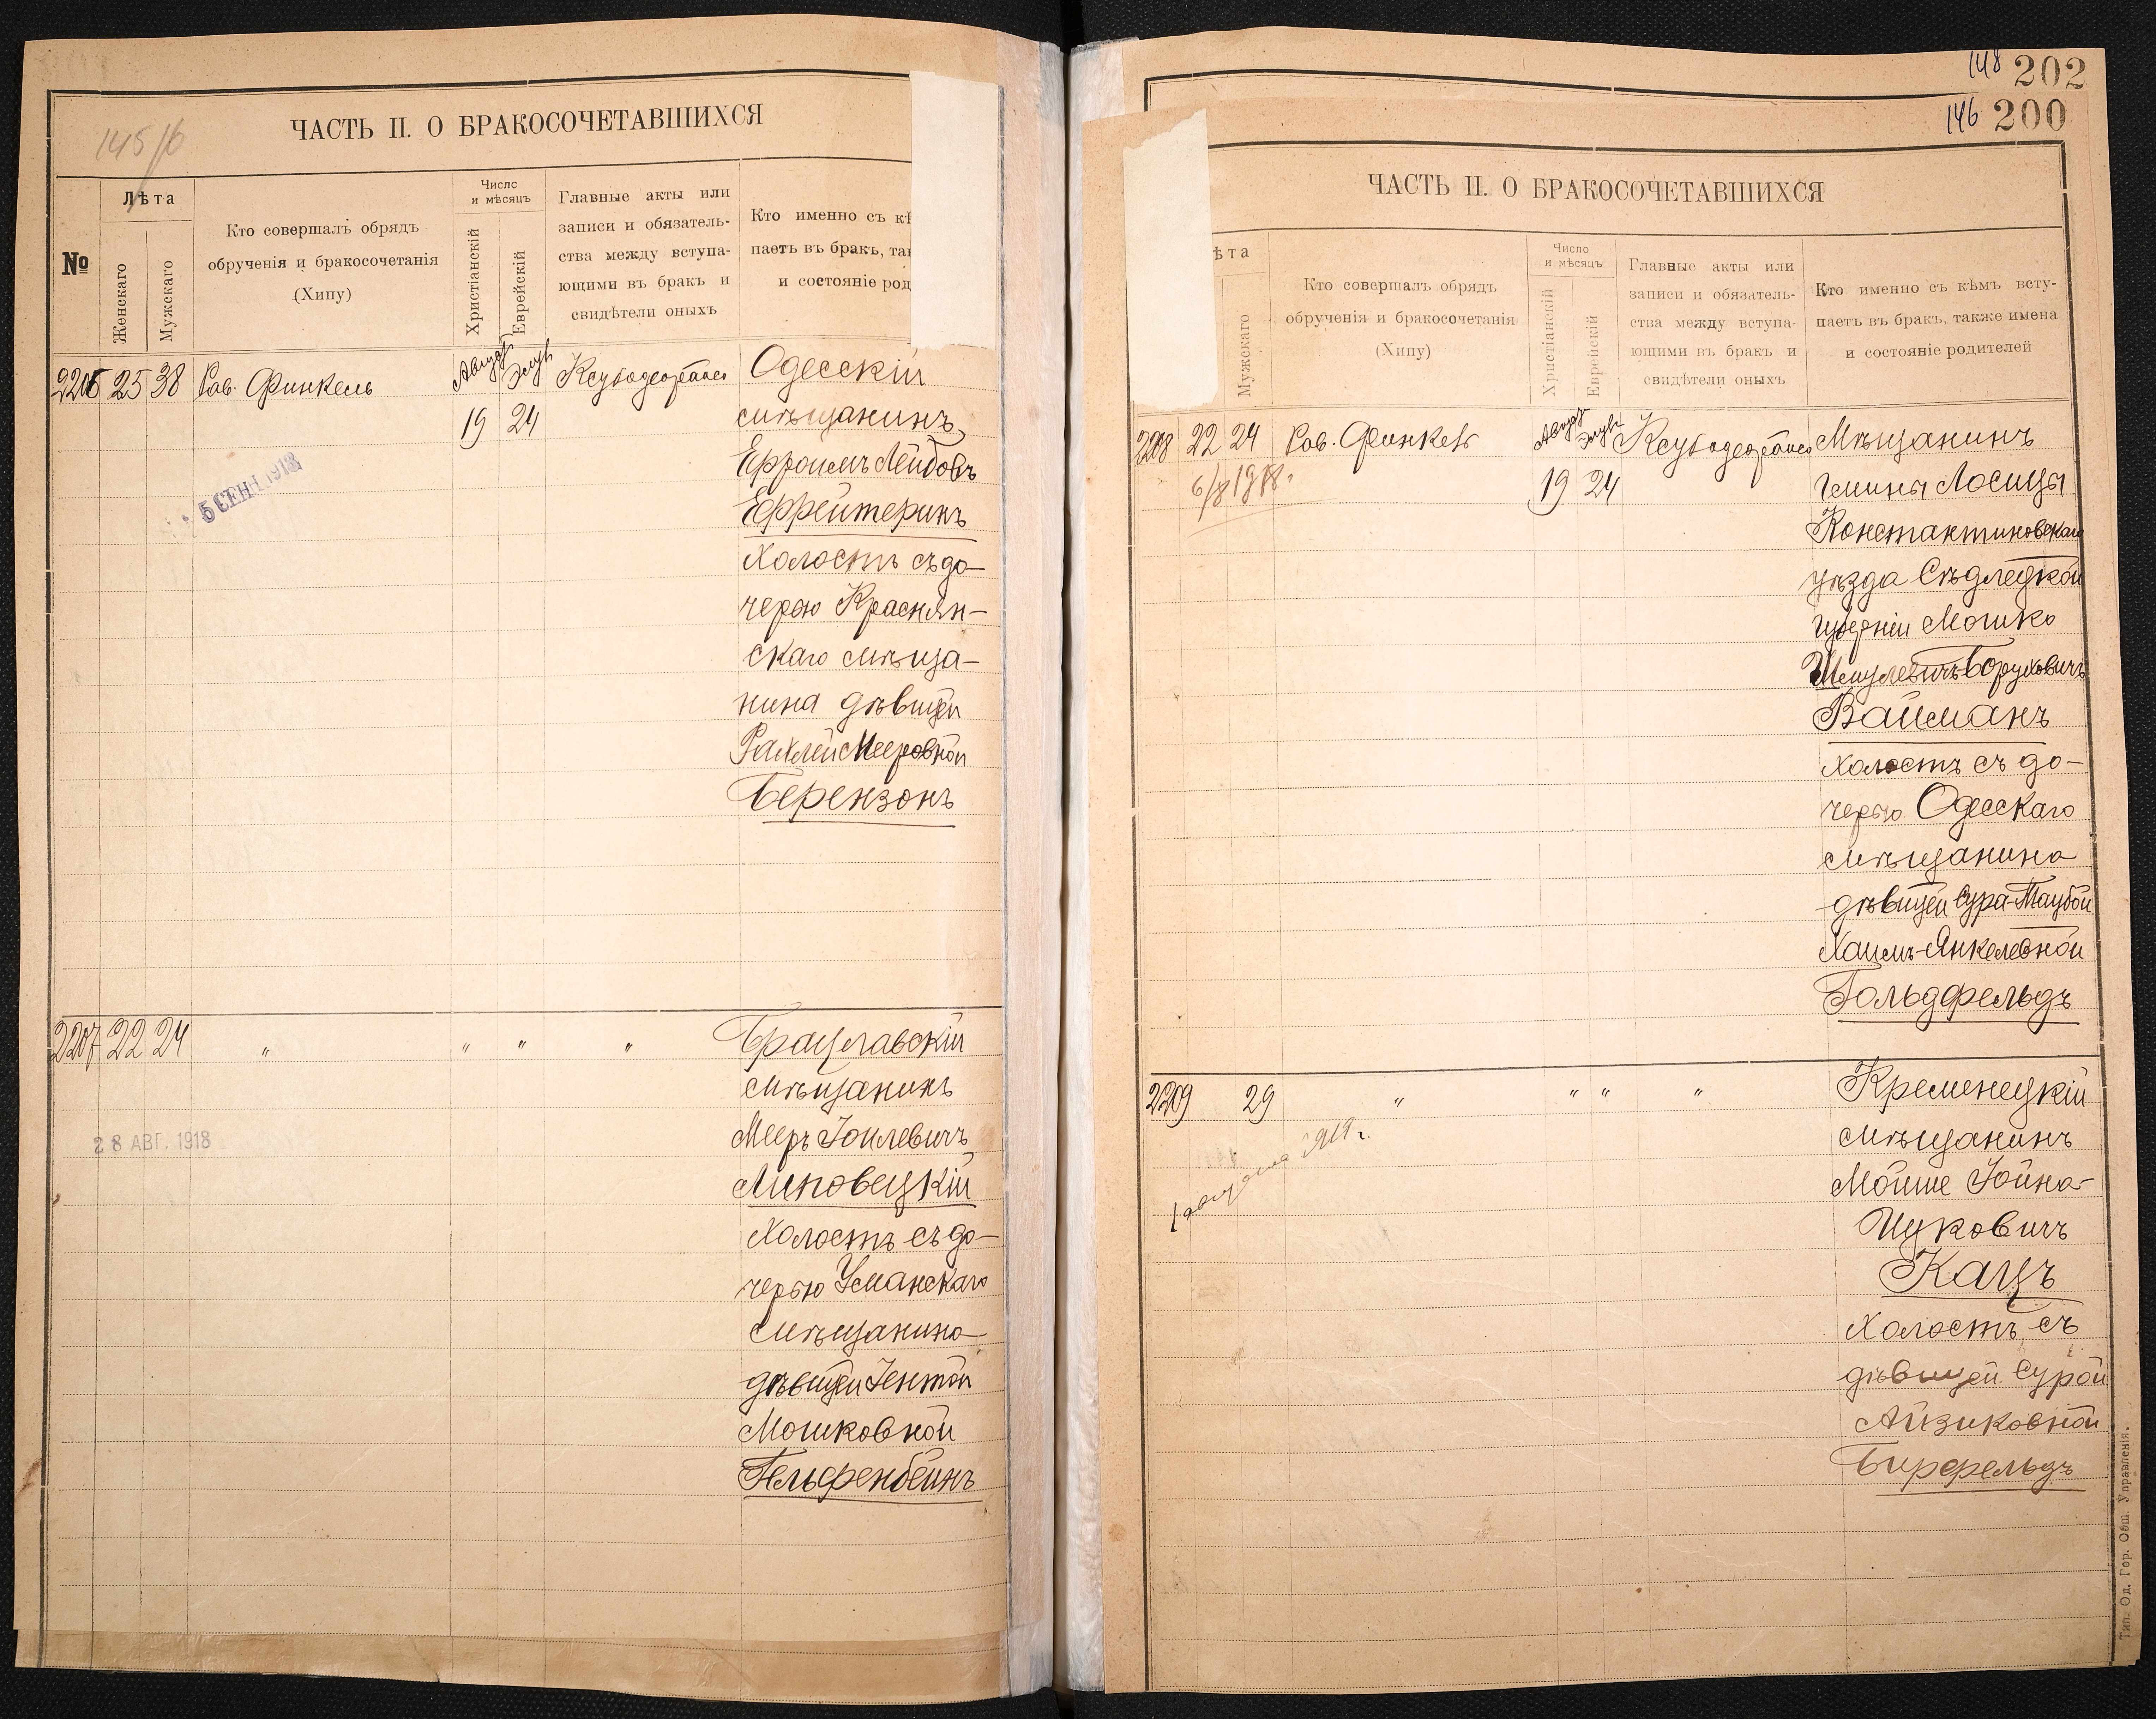 145/б
ЧАСТЬ II. О БРАКОСОЧЕТАВШИХСЯ
№
Лѣта
Женскаго
Мужскаго
Кто совершалъ обрядъ
обрученія и бракосочетанія
(Хипу)
Число
и мѣсяцъ
Христіанскій
Еврейскій
Главные акты или
записи и обязатель-
ства между вступа-
ющими въ бракъ и
свидѣтели оныхъ
Кто именно съ кѣ
паетъ въ бракъ, так
и состояніе род
2206 25 38 Рав. Финкель Августъ Элулъ Одесскій
19 24 мѣщанинъ
Ефроимъ Лейбовъ
Эффейтеринъ
холостъ съ до-
черью Краснян-
скаго мѣща-
нина дѣвицей
Рахлей Мееровной
Берензонъ
5 СЕН 1918
2207 22 24 " " " " Брацлавскій
мѣщанинъ
Мееръ Іойлевичъ
Липовецкій
холостъ съ до-
черью Уманскаго
мѣщанина
дѣвицей Іентой
Мошковной
Гельфенбейнъ
28 АВГ. 1918
148 202
146 200
ЧАСТЬ II. О БРАКОСОЧЕТАВШИХСЯ
ѣта
Мужскаго
Кто совершалъ обрядъ
обрученія и бракосочетанія
(Хипу)
Число
и мѣсяцъ
Христіанскій
Еврейскій
Главные акты или
записи и обязатель-
ства между вступа-
ющими въ бракъ и
свидѣтели оныхъ
Кто именно съ кѣмъ всту-
паетъ въ бракъ, также имена
и состояніе родителей
2208 22 24 Рав. Финкель Августъ Элулъ Мѣщанинъ
6/8 1918. 19 24 Гмины Лосицы
Константиновскаго
уѣзда Сѣдлецкой
губерніи Мошко
Шмулевичъ-Боруховичъ
Вайсманъ
холостъ съ до-
черью Одесскаго
мѣщанина
дѣвицей Сура-Таубой
Хаимъ-Янкелевной
Гольдфельдъ
2209 29 " " " " Кременецкій
мѣщанинъ
Мойше Іойна-
Ицковичъ
Кацъ
холостъ съ
дѣвицей Сурой
Айзиковной
Бирфельдъ
1 августа
Тип. Од. Гор. Общ. Управленія.